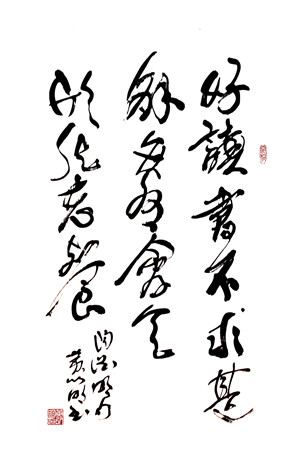 好讀書不求甚
解每有會意
欣然忘食
陶渊明句